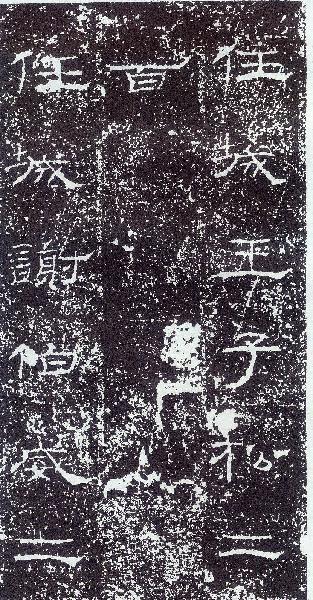 任城王子松二
百
任城謝伯威二